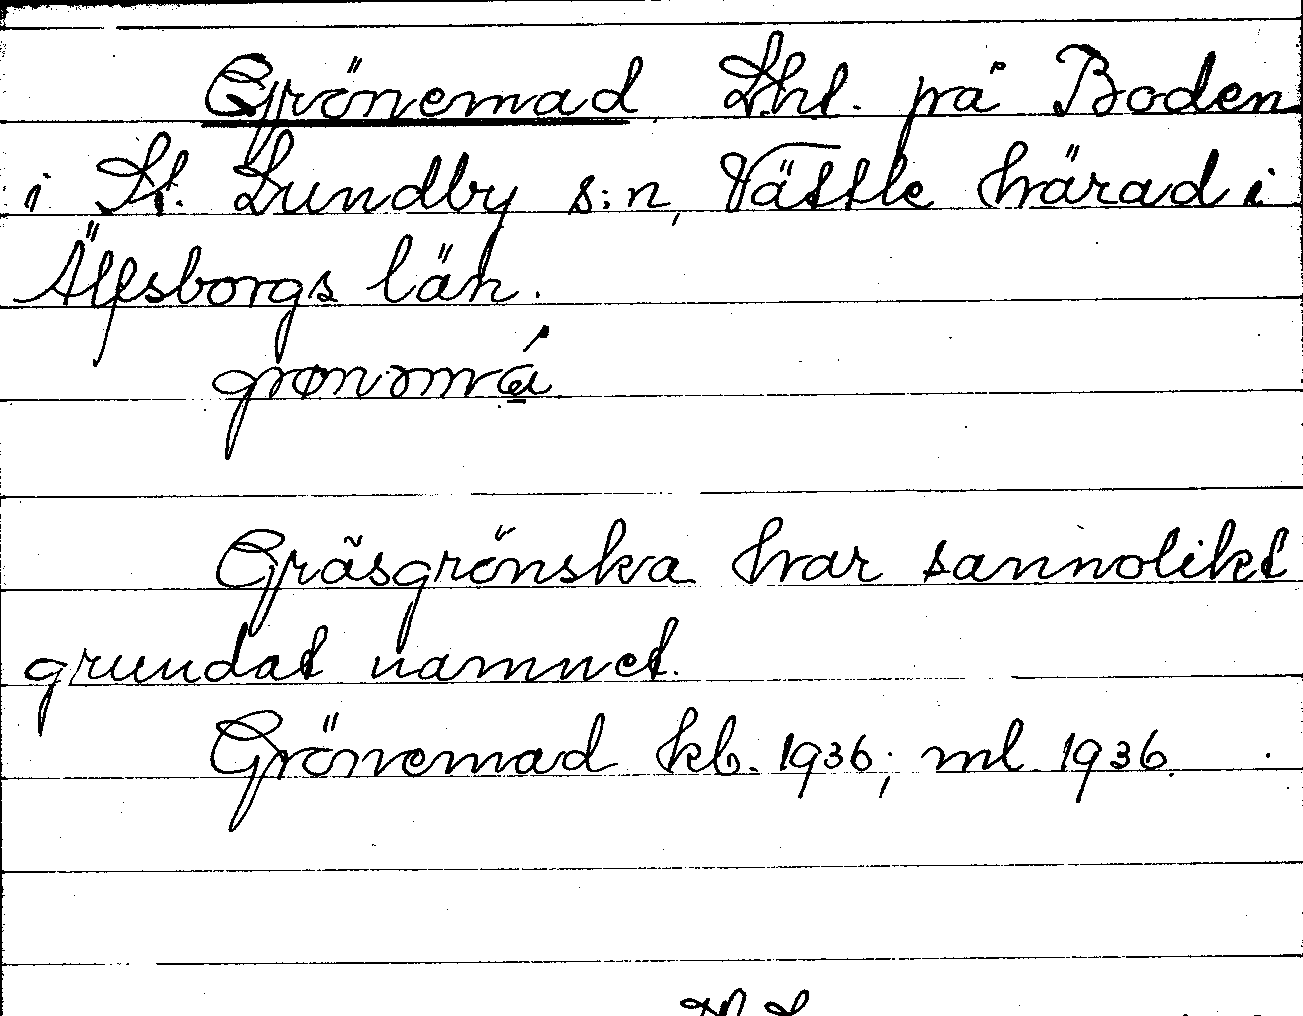 Grönemad Lht. på Boden
i St. Lundby s:n, Vättle härad i
Älfsborgs län.
Gräsgrönska har sannolikt
grundat namnet.
Grönemad kb. 1936; ml 1936.